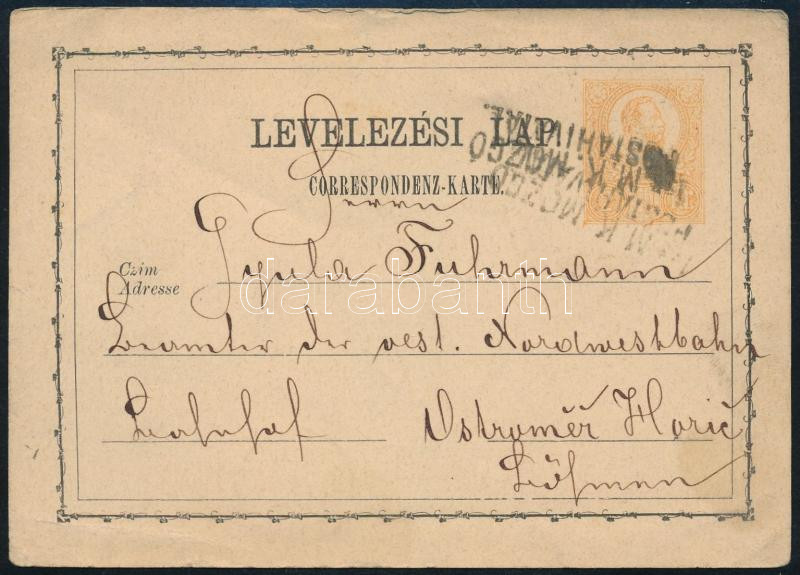 LEVELEZÉSI LAP.
CORRESPONDENZ-KARTE.
M. K. MOZGÓ
POSTAHIVATAL.
Herrn
Czim
Adresse
Gyula Fuhrmann
darabanth
Beamter der oest. Nordwestbahn
Bahnhof Ostroměř Hořic
Böhmen